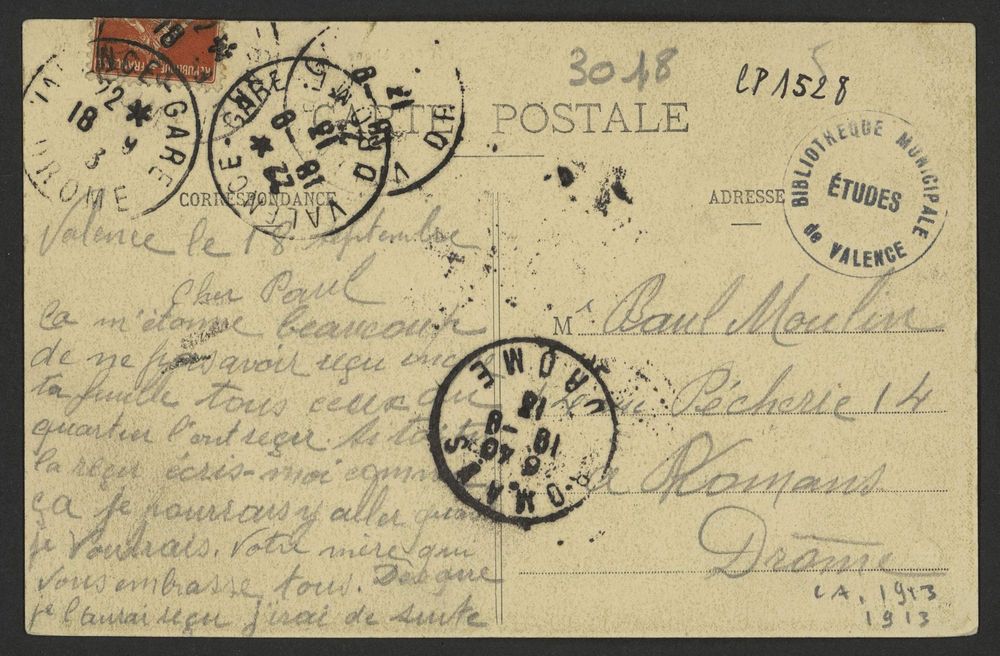 3018
CP 1528
CARTE POSTALE
CORRESPONDANCE
ADRESSE
BIBLIOTHEQUE MUNICIPALE
ÉTUDES
de VALENCE
REPUBLIQUE FRANÇAISE
GARE
18
DROME
VALENCE-GARE
DROME
Valence le 18 septembre
Cher Paul
Ça m'étonne beaucoup
de ne pas avoir reçu
ta feuille tous ceux du
quartier l'ont reçu. Si
la reçu écris-moi comme
ça je pourrais y aller quand
je voudrais. Votre mère qui
vous embrasse tous. Dès que
je l'aurai reçu j'irai de suite
Mr Paul Moulin
Pécherie 14
Romans
Drôme
ROMANS
DROME
6 40
18 - 9
13
CA. 1913
1913